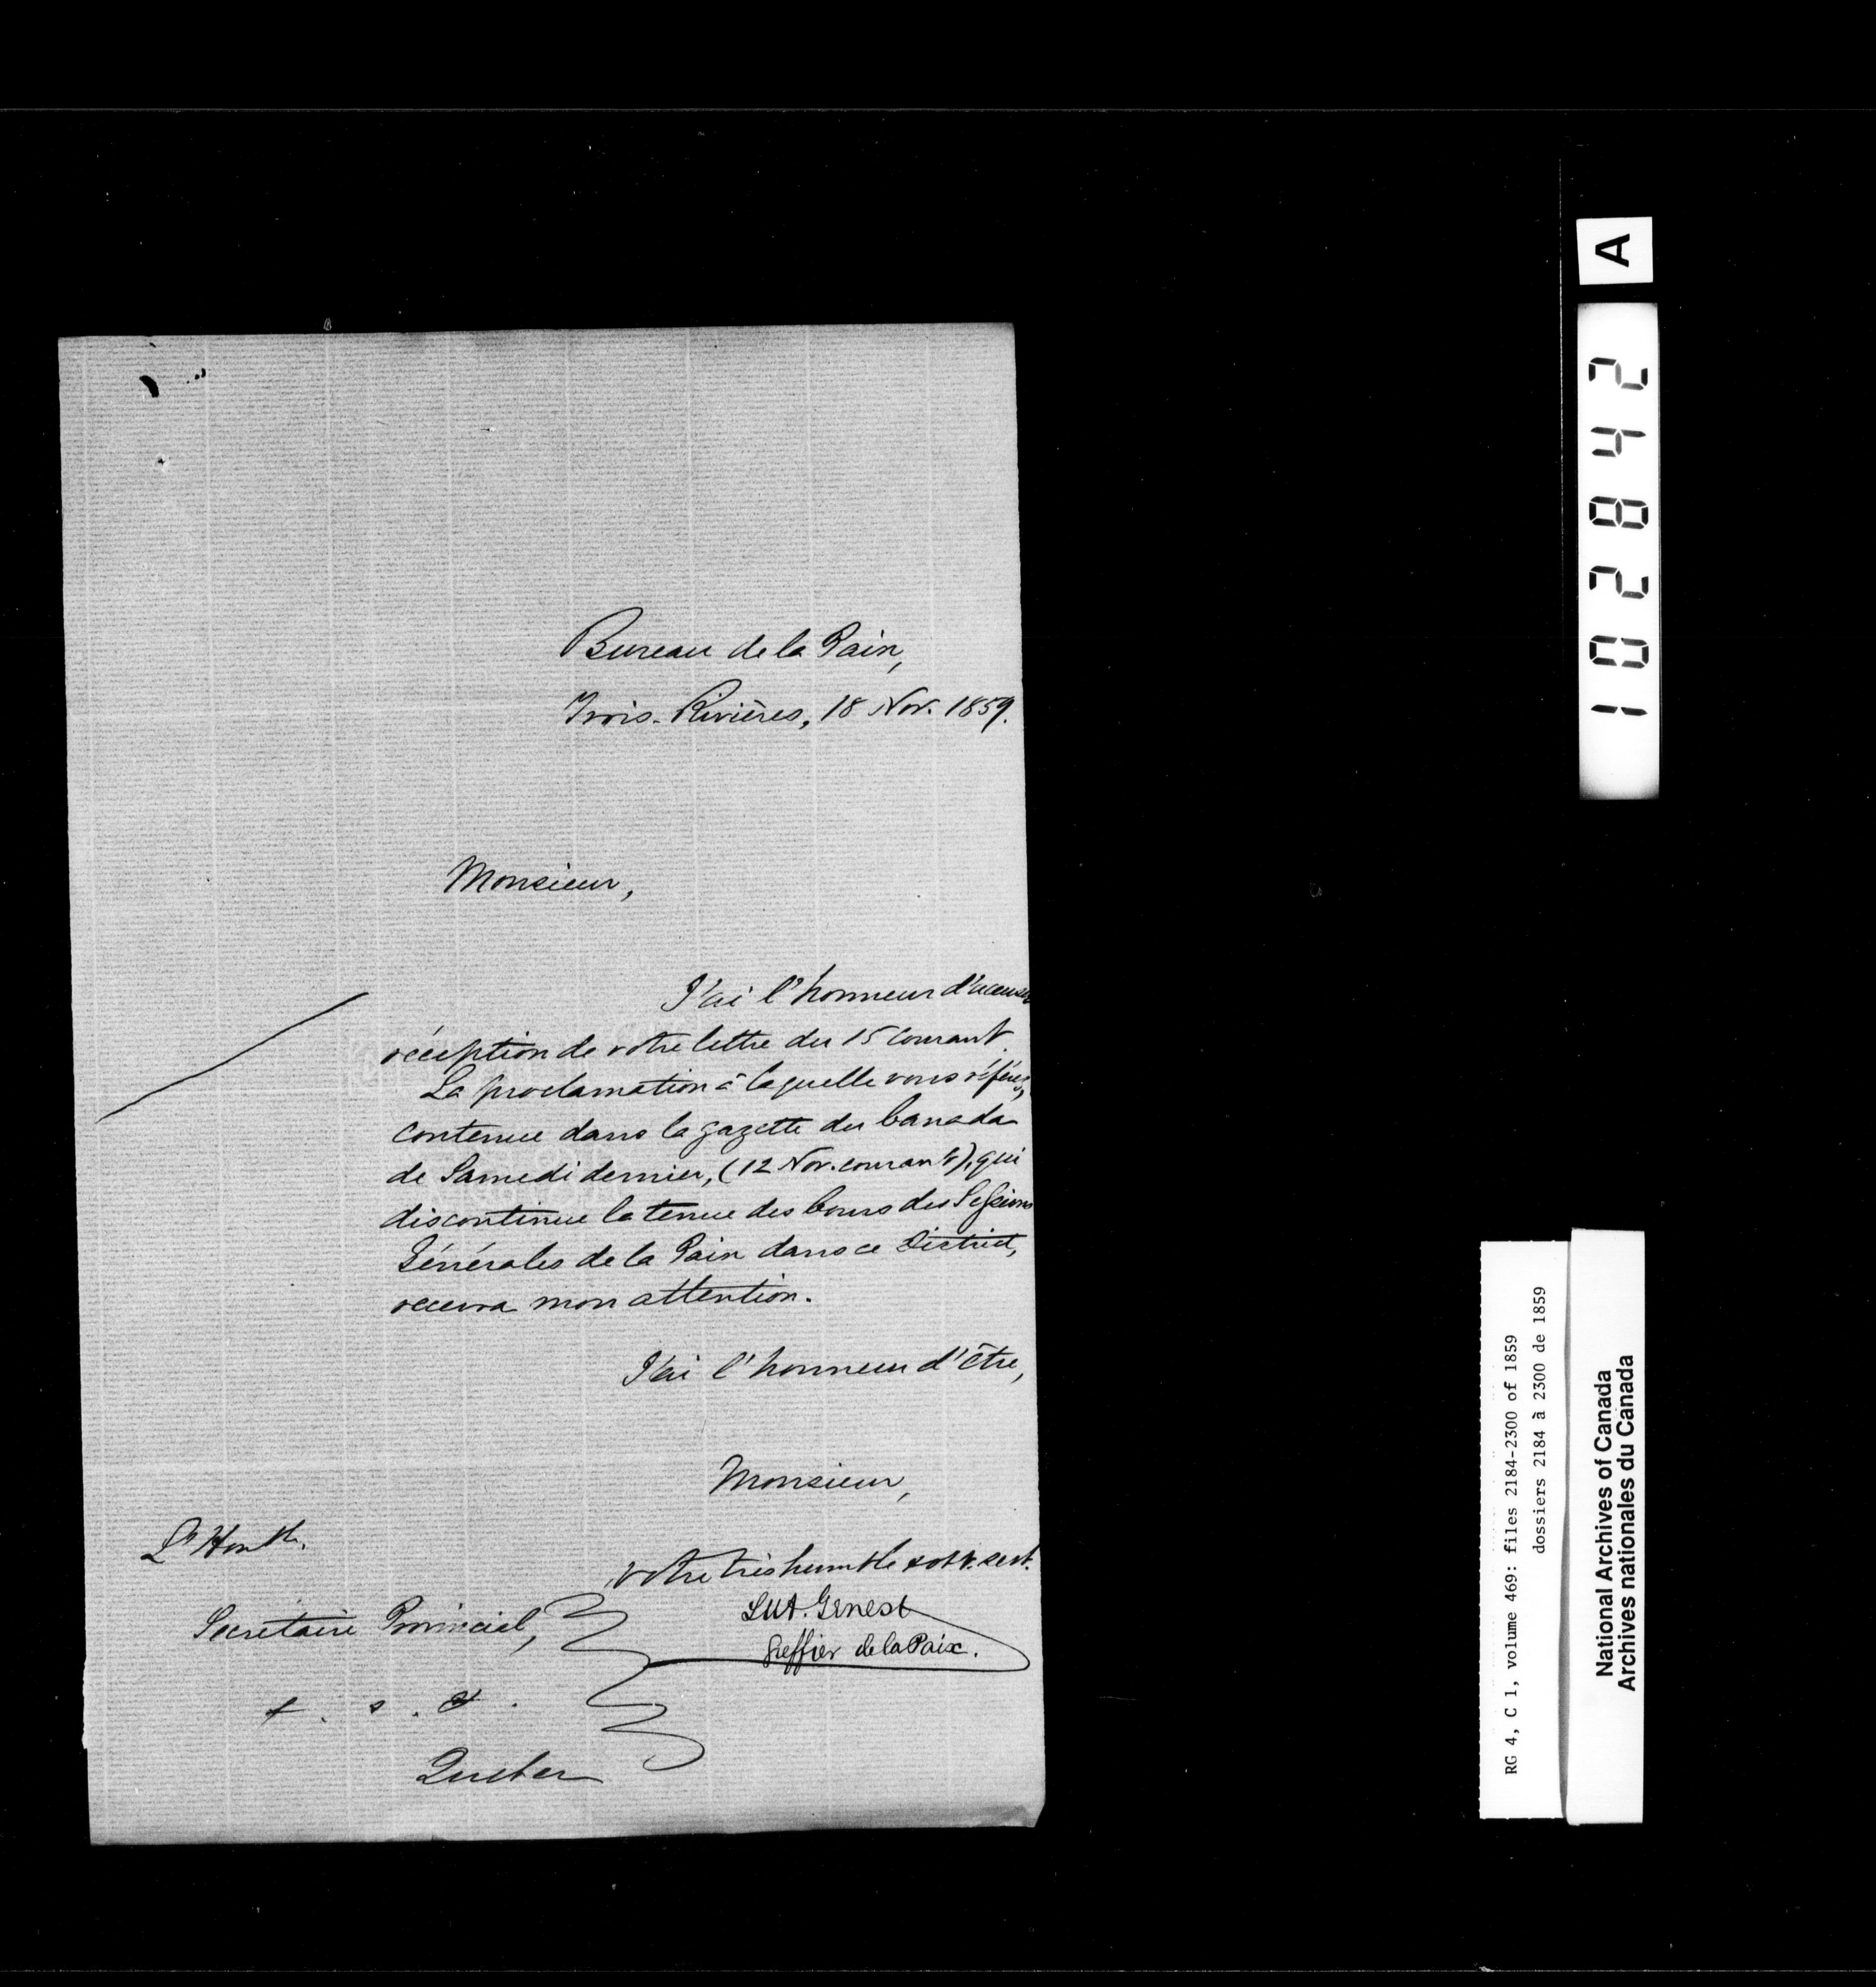 Bureau de la Paix,
Trois-Rivières, 18 Nov. 1859.
Monsieur,
J'ai l'honneur d'accuser
réception de votre lettre du 15 courant.
La proclamation à laquelle vous référez,
contenue dans la gazette du Canada
de Samedi dernier, (12 Nov. courant), qui
discontinue la tenue des Cours des Sessions
Générales de la Paix dans ce District,
recevra mon attention.
J'ai l'honneur d'être,
Monsieur,
votre très humble & obt. servt.
L.U.A. Genest
Greffier de la Paix.
L'Honble.
Secrétaire Provincial,
&. &. &.
Québec
A
102842
RG 4, C 1, volume 469: files 2184-2300 of 1859
dossiers 2184 à 2300 de 1859
National Archives of Canada
Archives nationales du Canada